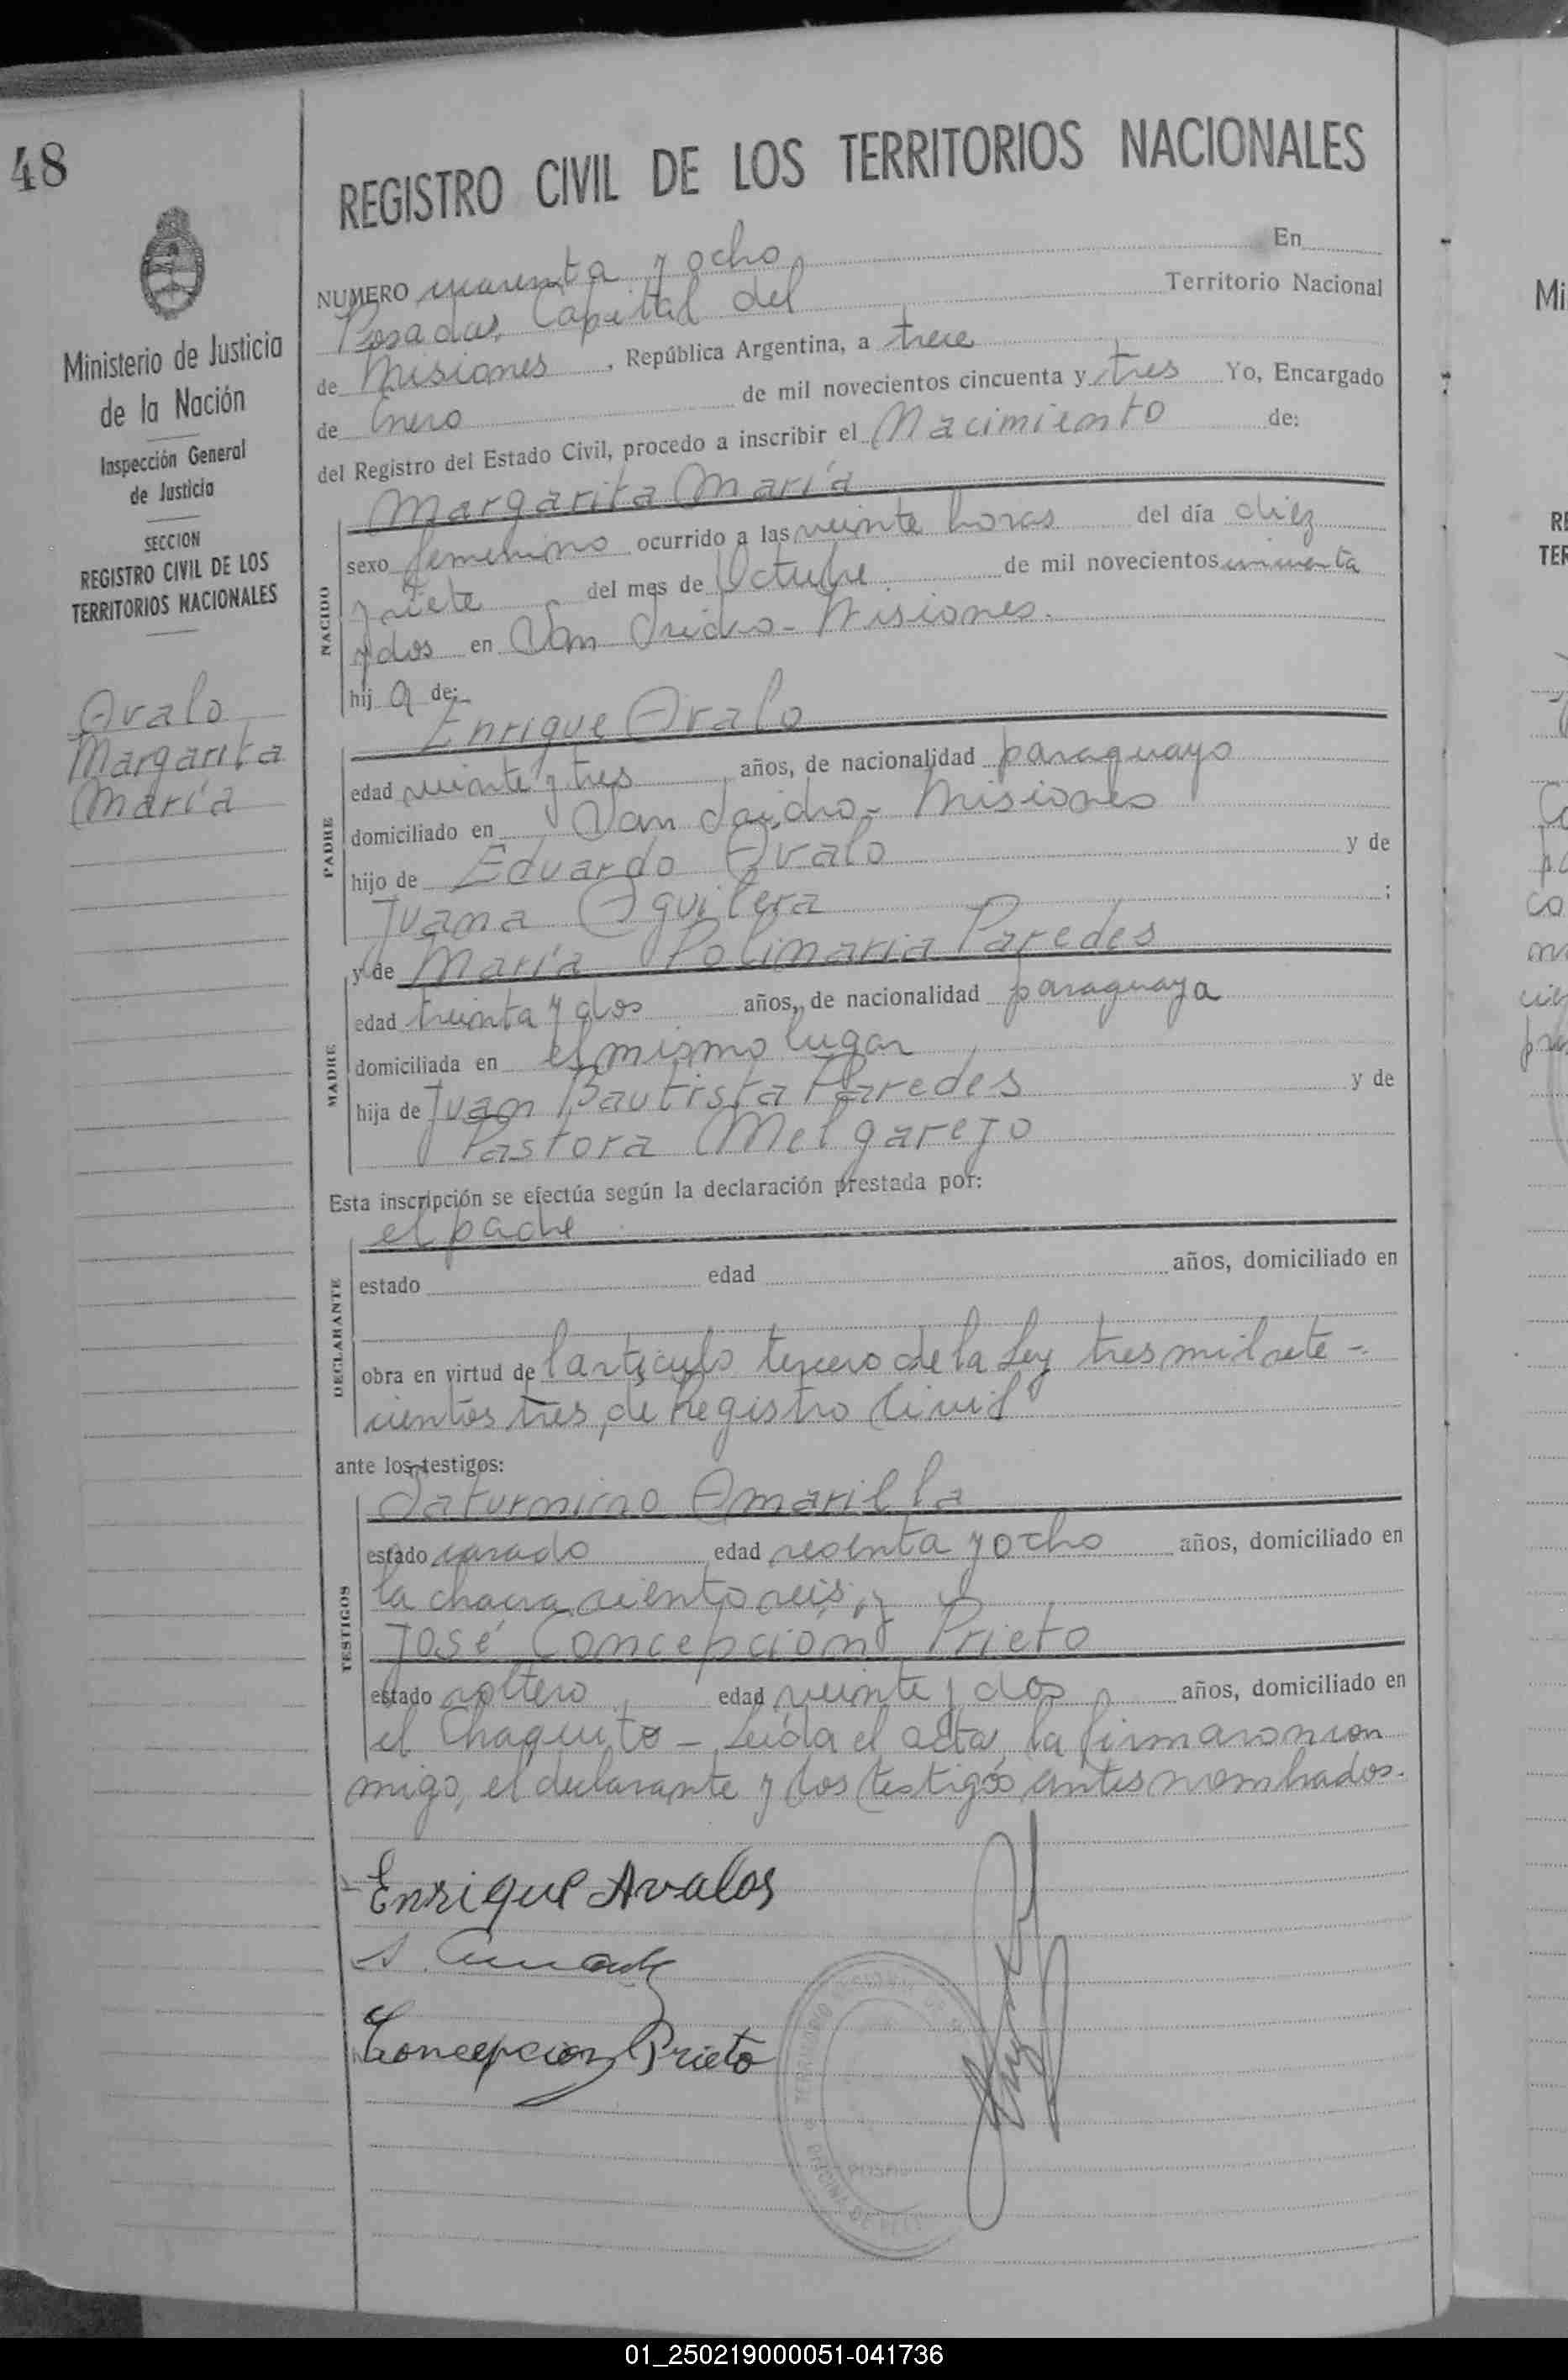 48
REGISTRO CIVIL DE LOS TERRITORIOS NACIONALES
Ministerio de Justicia
de la Nación
Inspección General
de Justicia
SECCION
REGISTRO CIVIL DE LOS
TERRITORIOS NACIONALES
Ovalo
Margarita
María
NUMERO cuarenta y ocho En
Posadas, Capital del Territorio Nacional
de Misiones, República Argentina, a trece
de Enero de mil novecientos cincuenta y tres Yo, Encargado
del Registro del Estado Civil, procedo a inscribir el Nacimiento de:
NACIDO
Margarita María
sexo femenino ocurrido a las veinte horas del día diez
y siete del mes de Octubre de mil novecientos cincuenta
y dos en San Isidro - Misiones.
hij a de:
PADRE
Enrique Ovalo
edad veinte y tres años, de nacionalidad paraguayo
domiciliado en San Isidro - Misiones
hijo de Eduardo Ovalo y de
Juana Aguilera ;
MADRE
y de María Polimaria Paredes
edad treinta y dos años, de nacionalidad paraguaya
domiciliada en el mismo lugar
hija de Juan Bautista Paredes y de
Pastora Melgarejo
Esta inscripción se efectúa según la declaración prestada por:
DECLARANTE
el padre
estado edad años, domiciliado en
obra en virtud de l artículo tercero de la Ley tres mil sete-
cientos tres, de Registro Civil
ante los testigos:
TESTIGOS
Saturnino Amarilla
estado casado edad sesenta y ocho años, domiciliado en
la chacra ciento seis, y
José Concepción Prieto
estado soltero edad veinte y dos años, domiciliado en
el Chaquito - Leída el acta, la firmaron con
migo, el declarante y los testigos antes nombrados.
Enrique Avalos
Concepcion Prieto
01_250219000051-041736